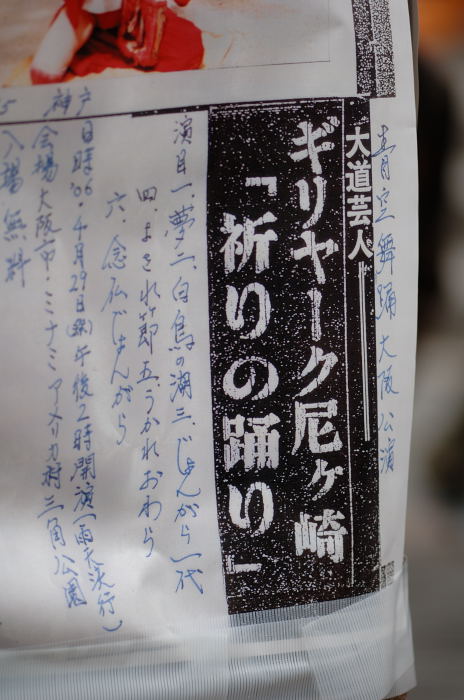 青空舞踊 大阪公演
大道芸人
ギリヤーク尼ヶ崎
「祈りの踊り」
演目一、夢二、白鳥の湖三、じょんがら一代
四、よされ節五、うかれおわら
六、念仏じょんがら
日時'06・4月29日(祝)午後2時開演(雨天決行)
会場 大阪市・ミナミアメリカ村三角公園
入場無料
神戸